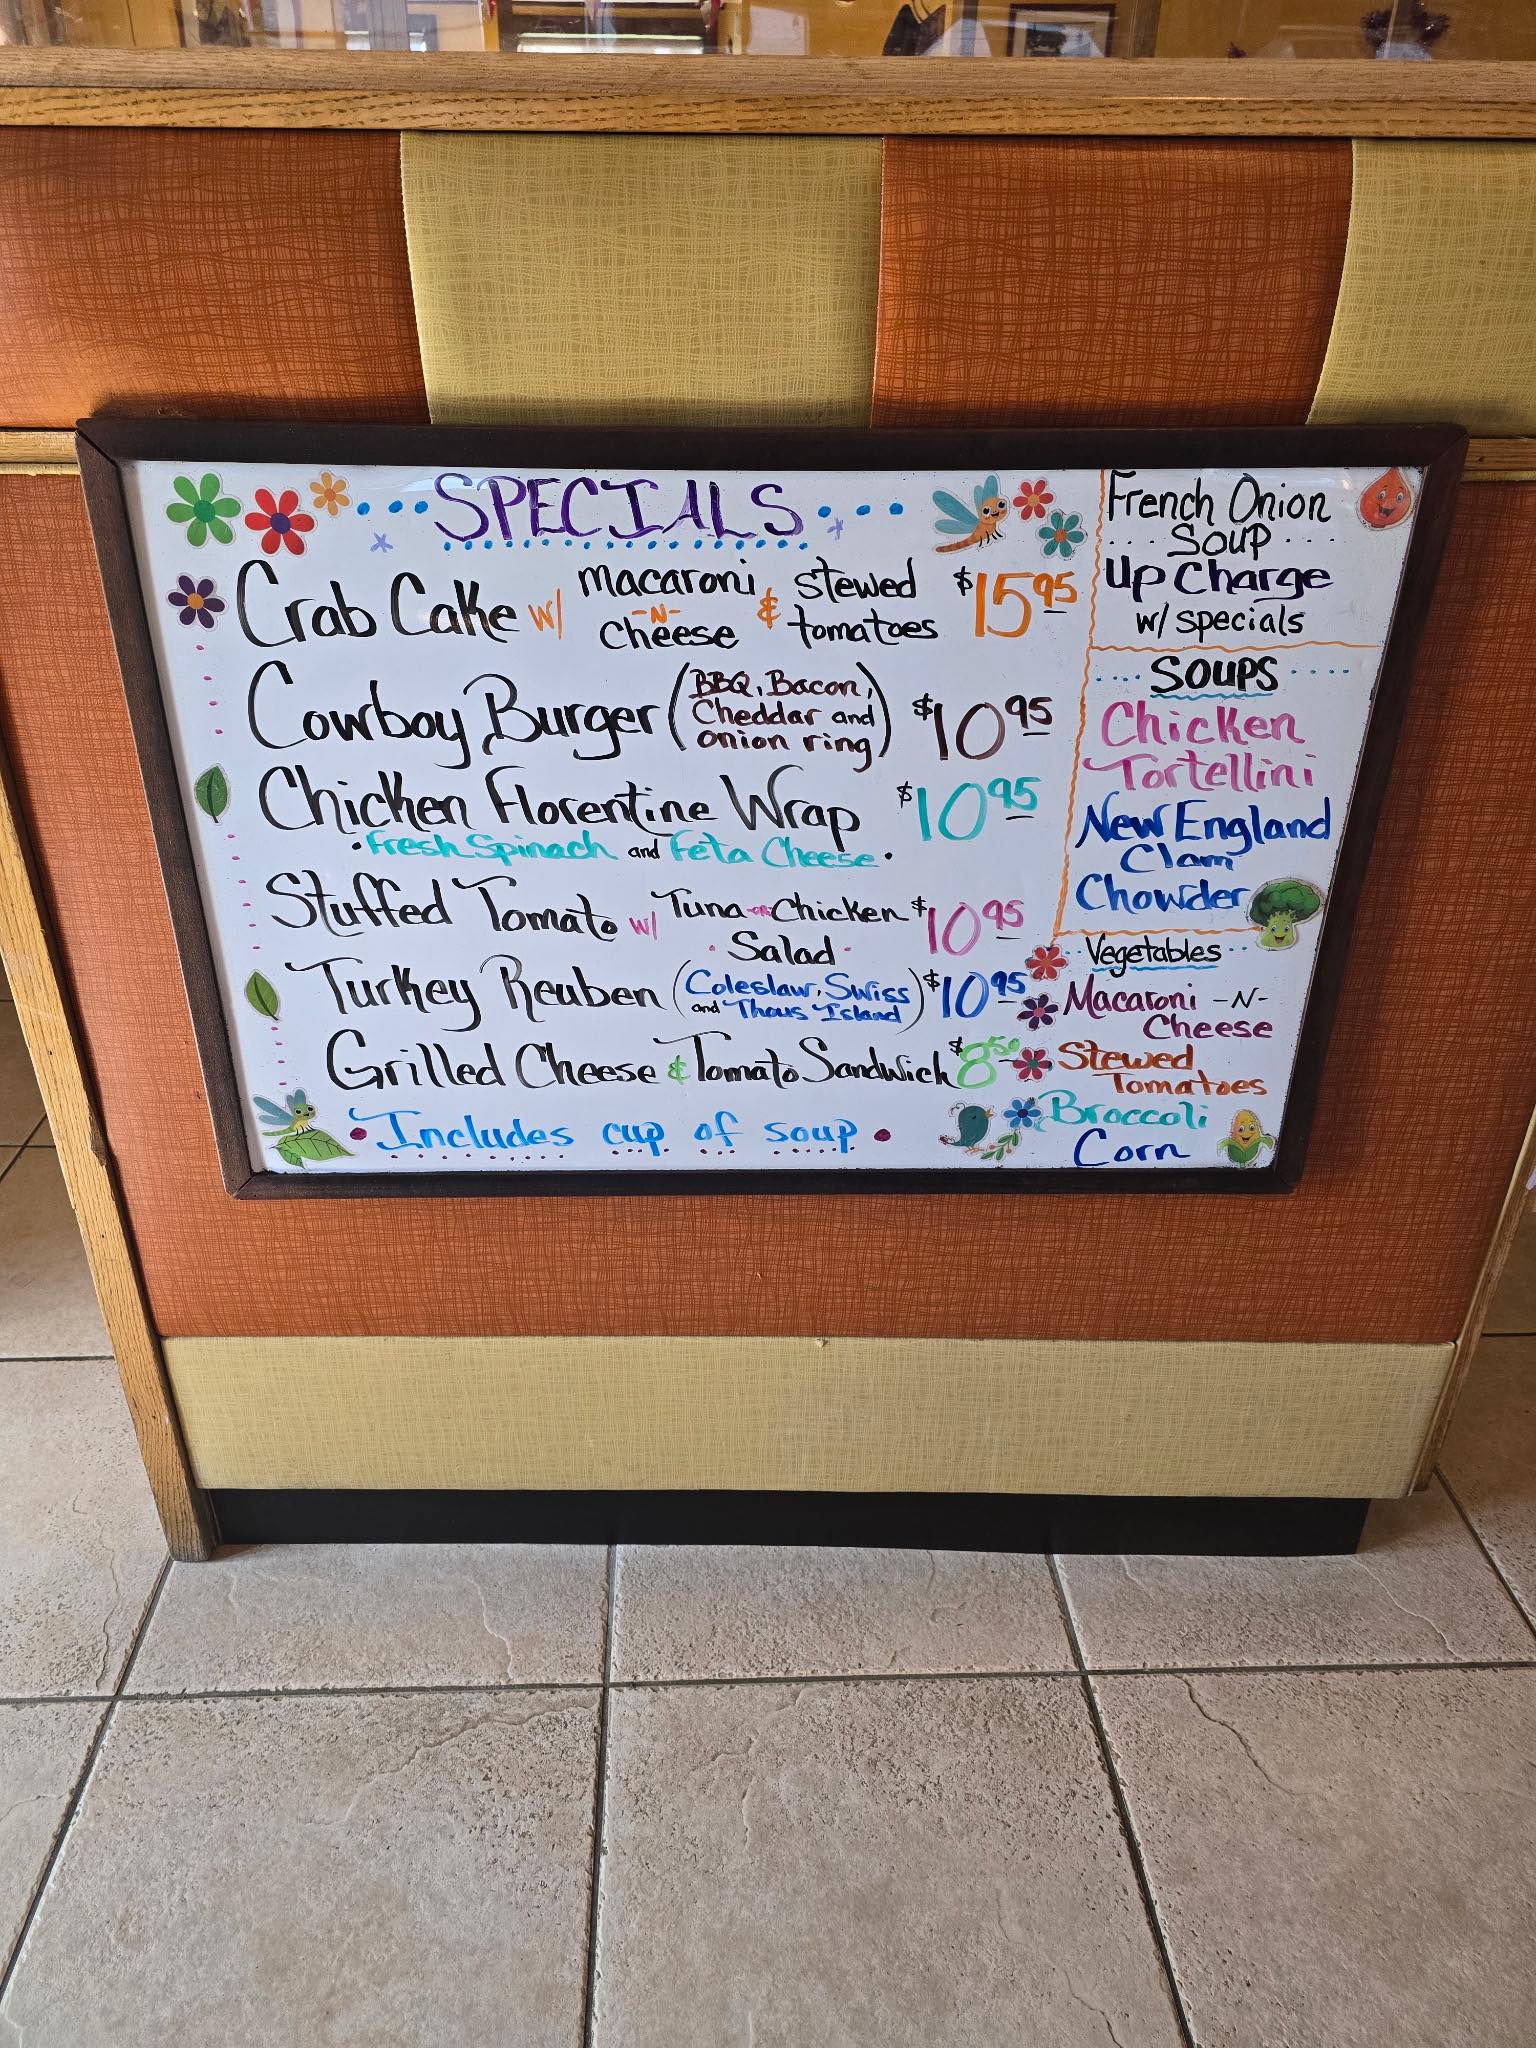 SPECIALS
Crab Cake w/ macaroni -N- cheese & stewed tomatoes $15.95
Cowboy Burger (BBQ, Bacon, Cheddar and onion ring) $10.95
Chicken Florentine Wrap $10.95
• Fresh Spinach and Feta Cheese •
Stuffed Tomato w/ Tuna or Chicken Salad $10.95
Turkey Reuben (Coleslaw, Swiss and Thous Island) $10.95
Grilled Cheese & Tomato Sandwich $8.50
• Includes cup of soup •
French Onion
Soup
Up Charge
w/ specials
SOUPS
Chicken
Tortellini
New England
Clam
Chowder
Vegetables
Macaroni -N-
Cheese
Stewed
Tomatoes
Broccoli
Corn